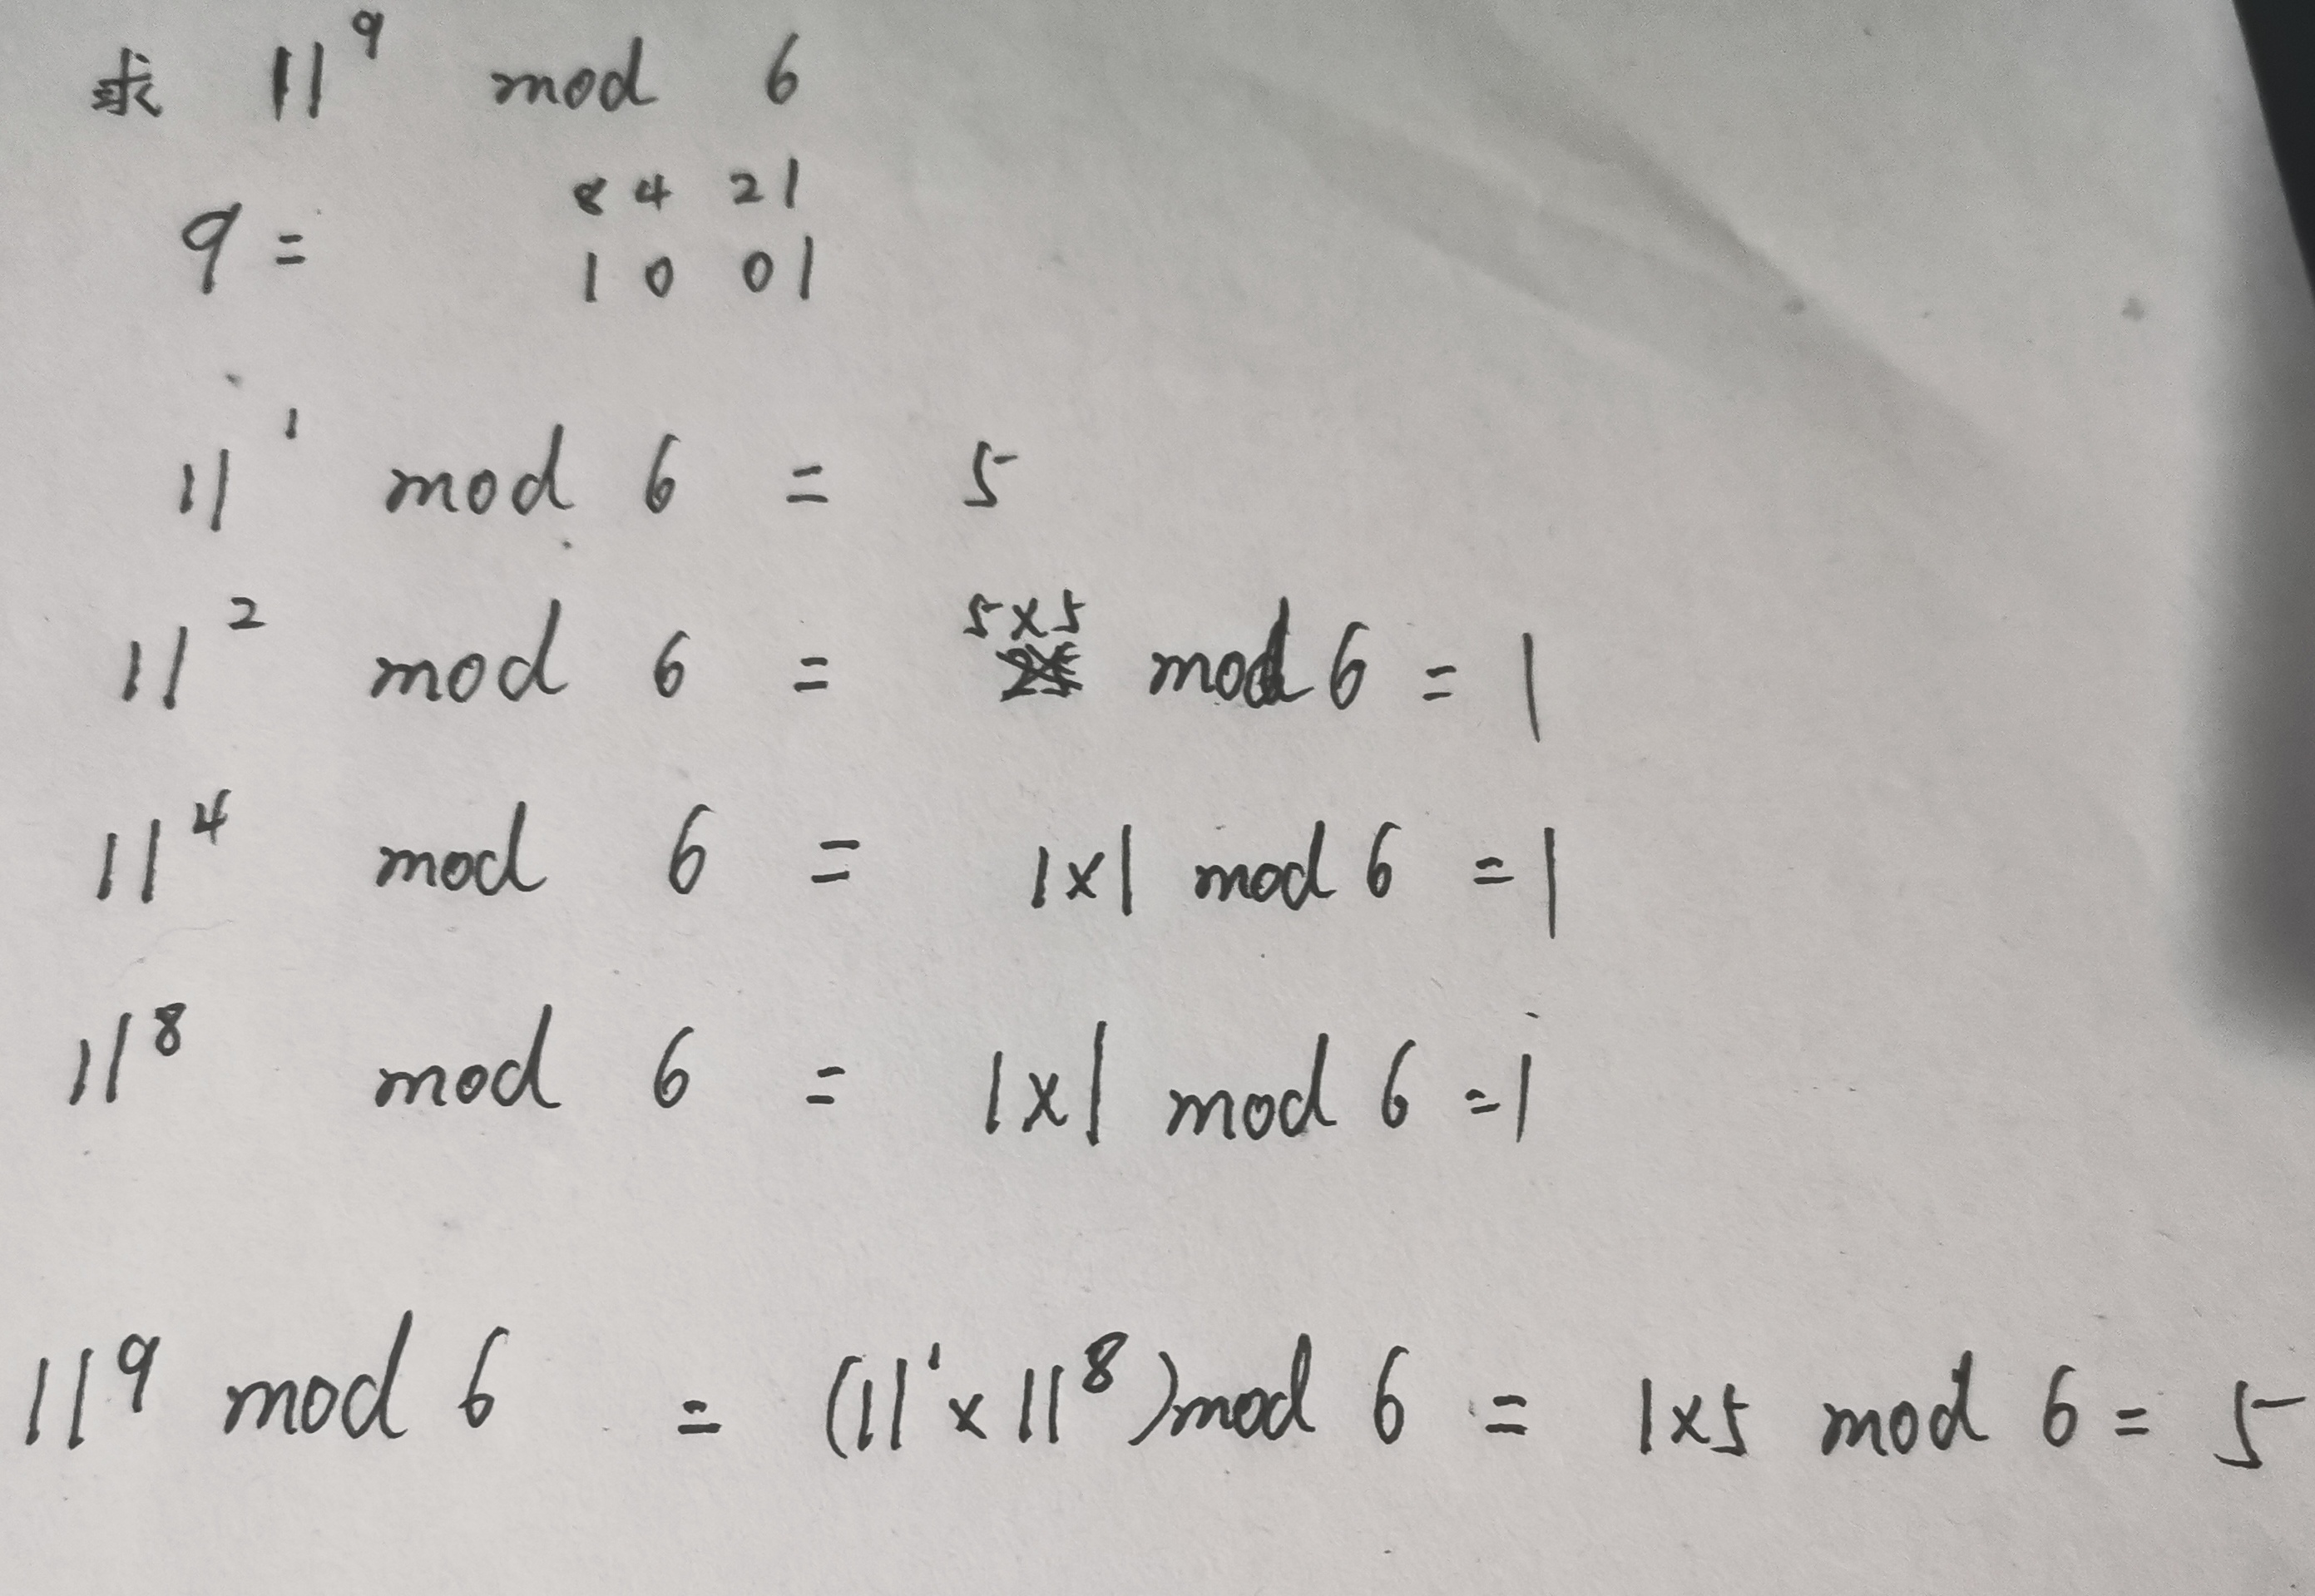 求 11⁹ mod 6
8 4 2 1
9 = 1 0 0 1
11¹ mod 6 = 5
5×5
11² mod 6 = mod 6 = 1
11⁴ mod 6 = 1×1 mod 6 = 1
11⁸ mod 6 = 1×1 mod 6 = 1
11⁹ mod 6 = (11¹ × 11⁸) mod 6 = 1×5 mod 6 = 5